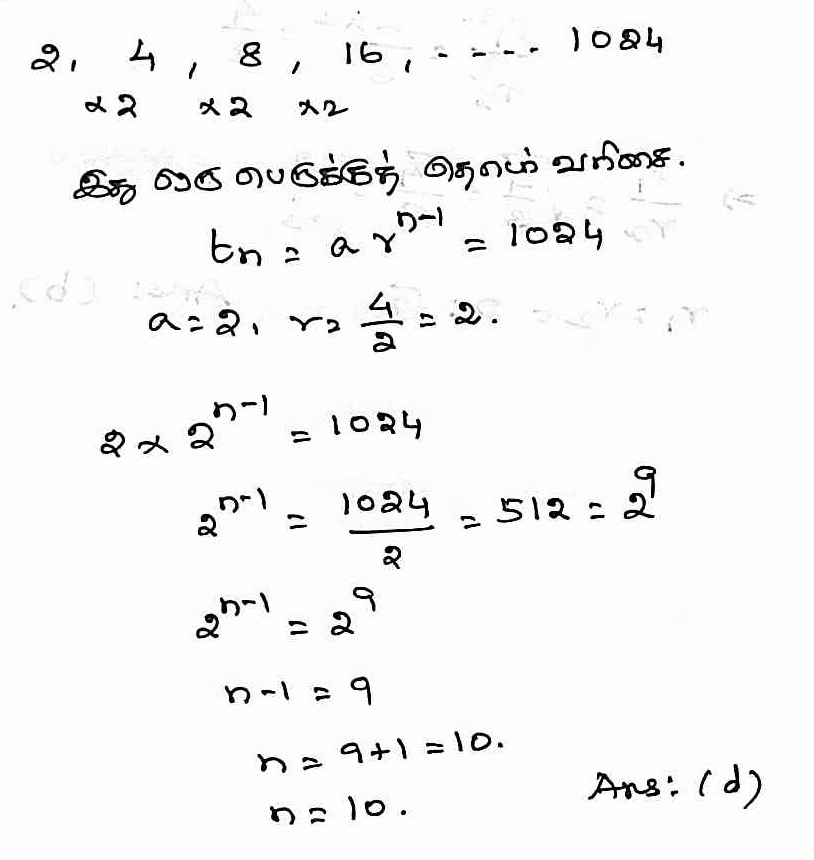 2, 4, 8, 16, ----- 1024
×2 ×2 ×2
இது ஒரு பெருக்குத் தொடர் வரிசை.
tn = a r^n-1 = 1024
a = 2, r = 4/2 = 2.
2 × 2^n-1 = 1024
2^n-1 = 1024/2 = 512 = 2^9
2^n-1 = 2^9
n-1 = 9
n = 9+1 = 10.
n = 10.
Ans: (d)